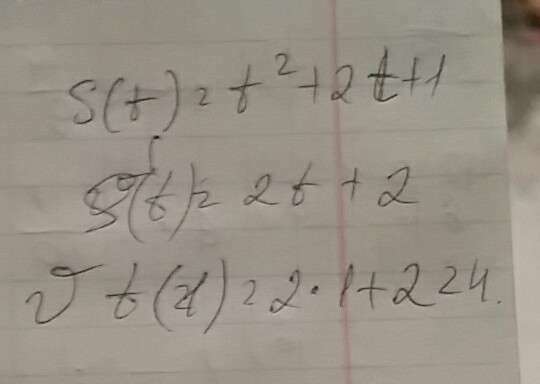 S(t) = t² + 2t + 1
S'(t) = 2t + 2
v t(1) = 2 · 1 + 2 = 4.